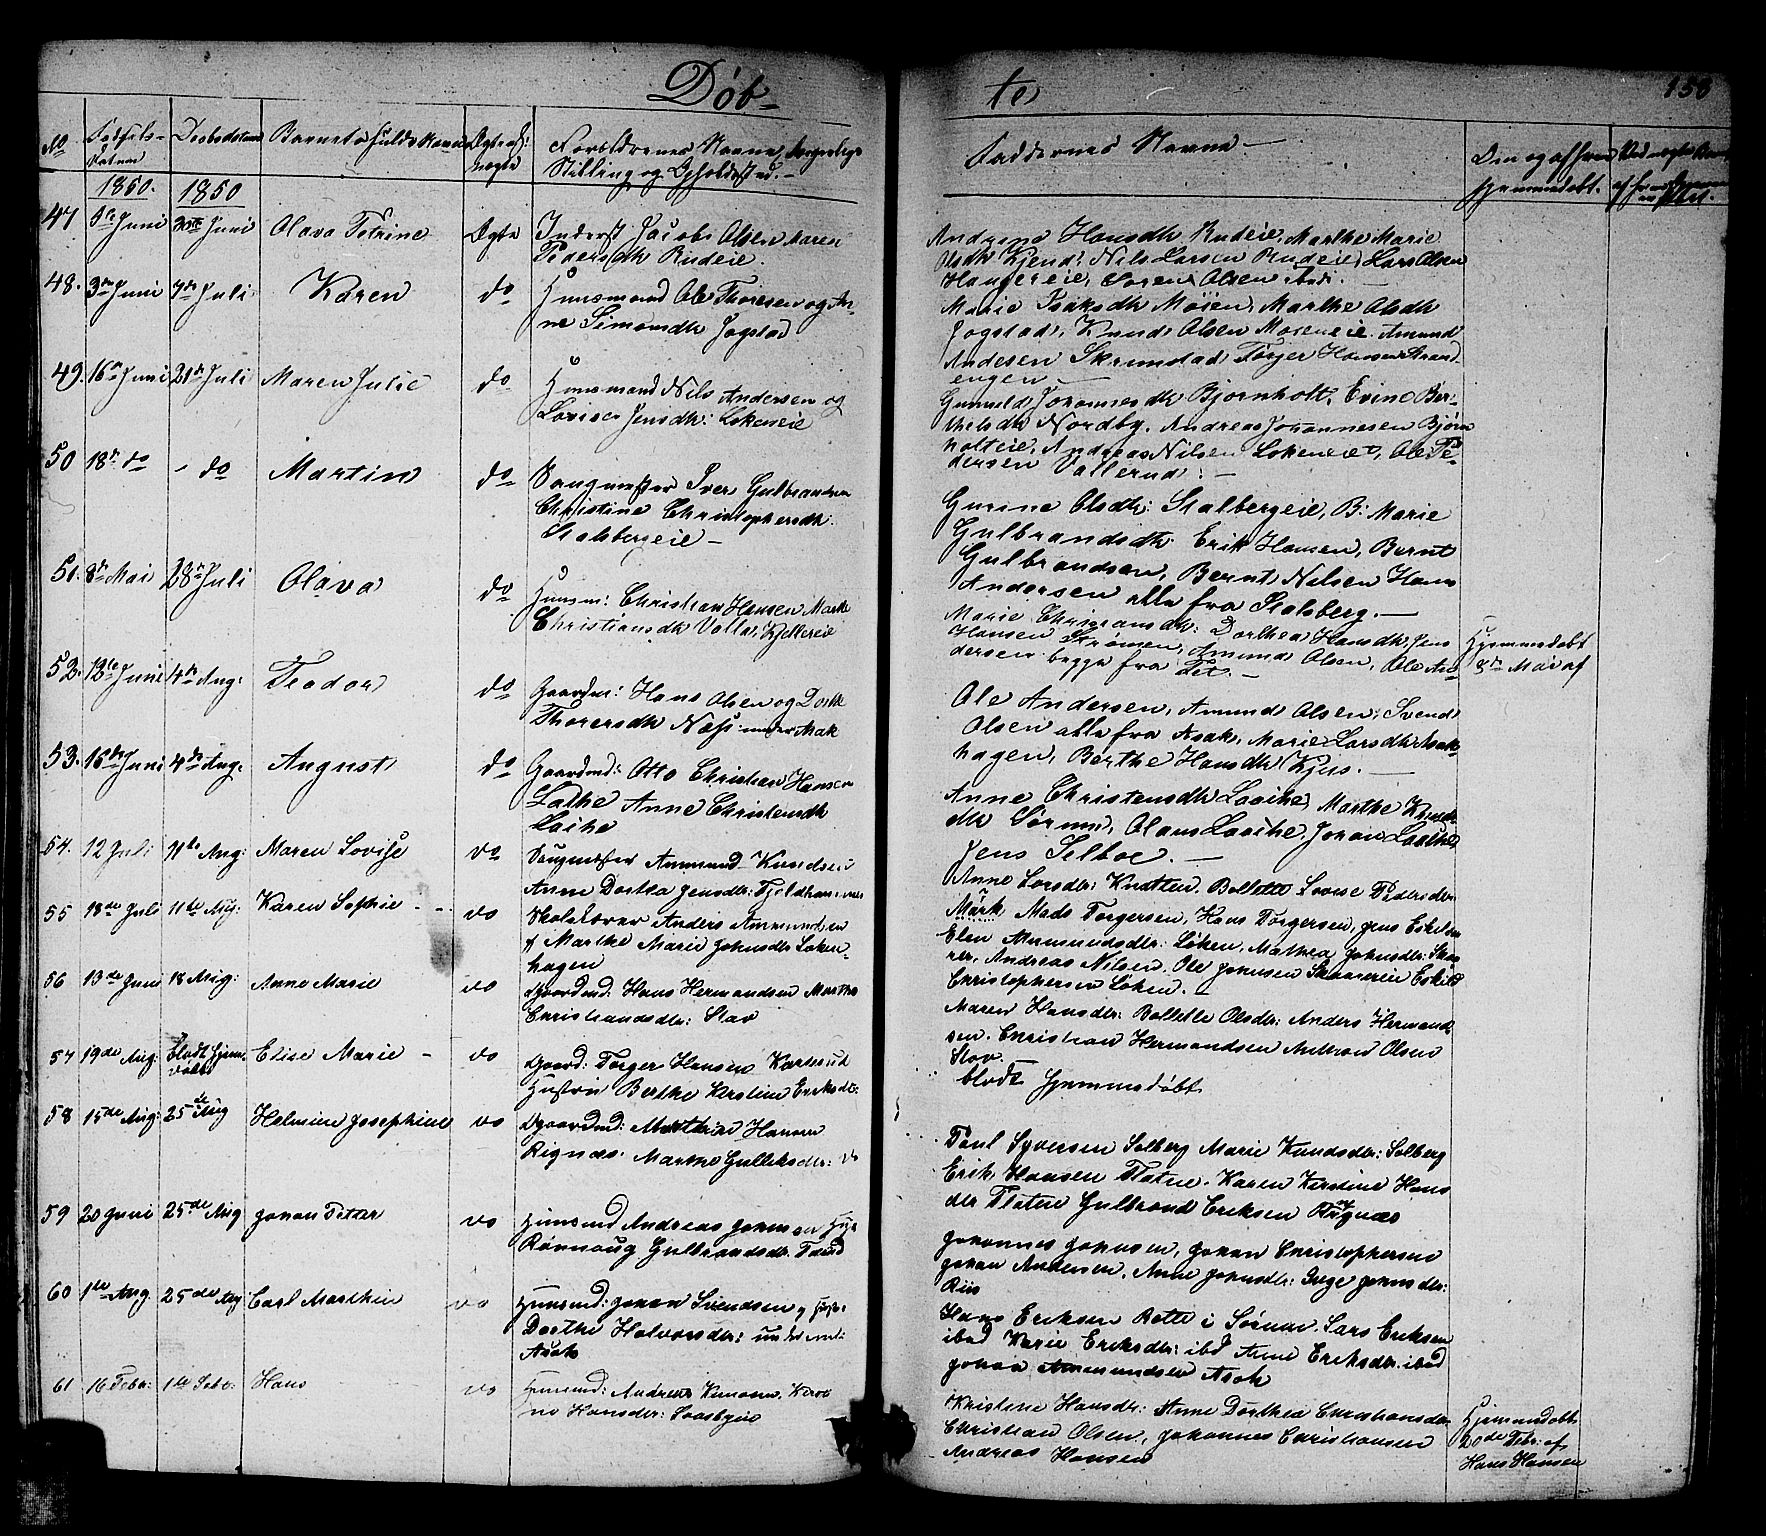 Døb-
te
158
No
Fødsels-
datum
Daabsdatum
Barnets fulde Navn
Ægte ell:
uægte
Forældrenes Navne, borgerlige
Stilling og Opholdssted.-
Faddernes Navne -
Om og af hvem
hjemmedøbt.
1850.
1850
47
Juni
30te Juni
Olava Petrine
Ægte
Inderst Jacob Olsen Maren
Pedersdtr Rudeie.
Andrine Hansdtr Rudeie, Marthe Marie
Olsdtr Kjend, Nils Larsen Rudeie, Lars Olsen
Haugereie, Soren Olsen ibid. -
48.
3die Juni
7de Juli
Karen
do
Huusmand Ole Thoresen og An-
ne Simonsdtr Jogstad
Marie Isaksdtr Moien, Marthe Olsdtr
Jogstad, Knud Olsen Moseneie, Amund
Andesen Skrimstad, Torger Hansen Strand-
engen -
49.
16de Juni
21de Juli
Maren Julie
do
Huusmand Nils Andersen og
Lovise Jensdtr: Lokeneie
Gunild Johannesdtr Bjornholt, Eline Ber-
thelsdtr Nordby, Andreas Johannesen Bjørn-
holteie, Andreas Nilsen Lokeneiet, Ole Pe-
dersen Vallerud. -
50
18de do
- do
Martin
do
Saugmester Iver Gulbrandsen
Christine Christophersdtr.
Stalsbergeie -
Gurine Olsdtr: Stalbergeie, B: Marie
Gulbrandsdtr Erik Hansen, Bernt
Gulbrandsen, Bernt Nilsen Hans
Andersen alle fra Stalsberg. -
51.
8de Mai
28de Juli
Olava
do
Huusm: Christian Hansen Marthe
Christiansdtr Vollar, Kjellereie
Marie Christiansdtr: Dorthea Hansdtr, Jens
Hansen Strømen, Amund Olsen, Ole An-
dersen begge fra Fet. -
Hjemmedøbt
8de Mai af
52.
12te Juni
4de Aug:
Teodor
do
Gaardm: Hans Olsen og Dorthe
Thoresdtr Næss under Asak
Ole Andersen, Amund Olsen, Svend
Olsen alle fra Asak, Marie Larsdtr Asak-
hagen, Berthe Hansdtr Kjus. -
53.
16de Juni
4de Aug.
August
do
Gaardmd: Otto Christian Hansen
Lathe Anne Christensdtr
Laike
Anne Christensdtr Laaike, Marthe Knuds-
dtr Sørum, Olaus Laaike, Johan Laaike,
Jens Selboe. -
54.
12 Juli
11te Aug:
Maren Lovise
do
Saugmester Ammund Knudsen
Anne Dortea Jensdtr: Fjeldhammer
Anne Larsdtr: Knatten. Bollette Lovise Pedersdtr
Mørk Mads Torgersen, Hans Torgersen, Jens Eskilsen
55
18de Juli
11te Aug:
Karen Sophie - -
do
Skolelærer Anders Ammundsen
og Marthe Marie Johnsdtr Løken-
hagen
Elen Ammundsdtr: Løken, Mathea Johnsdtr: Ska-
rer, Andreas Nilsen. Ole Johnsen Skarereie Eskild
Christophersen Løken. -
56
13de Juni
18 Aug:
Anne Marie
do
Gaardmd: Hans Hermandsen Marthe
Christiansdtr: Stav
Maren Hansdtr: Bollette Olsdtr: Anders Hermand-
sen. Christian Hermandsen Anthon Olsen
Stav.
57
19de Aug:
blodt hjem-
døbt
Elise Marie -
do
Gaard: Torger Hansen Karterud
Hustru Berthe Kirstine Eriksdtr:
blodt hjemmedøbt
58
15de Aug:
25de Aug
Helmine Josephine
do
Gaardmd: Mathias Hansen
Rignæs. Marthe Gulliksdtr: do
Poul Syversen Solberg Marie Knudsdtr: Solberg
Erik Hansen Flatne. Karen Kirstine Hans-
dtr Flatne Gulbrand Eriksen Rignæs
59
20 Juni
25de Aug
Johan Petter
do
Huusmd Andreas Johnsen Hus
Rønnoug Gulbrandsdtr.
Johannes Johnsen, Johan Christophersen
Johan Andersen, Anne Johnsdtr: Inge Johnsdtr:
Riis
60
1ste Aug.
25de Aug
Carl Marthin
do
Huusmd: Johan Svendsen og Hust:
Dorthe Halvorsdtr: under
Asak
Hans Eriksen Rette i Sørum. Lars Eriksen
ibid Marie Eriksdtr: ibd Anne Eriksdtr: ibid
Johan Ammundsen Asak
61
16 Febr:
Hans
do
Huusmd: Andreas
ne Hansdtr:
Kristine Hansdtr: Anne Dorthea Christiansdtr
Christian Olsen, Johannes Christiansen
Andreas Hansen
Hjemmedøbt
20de Febr: af
Hans Hansen